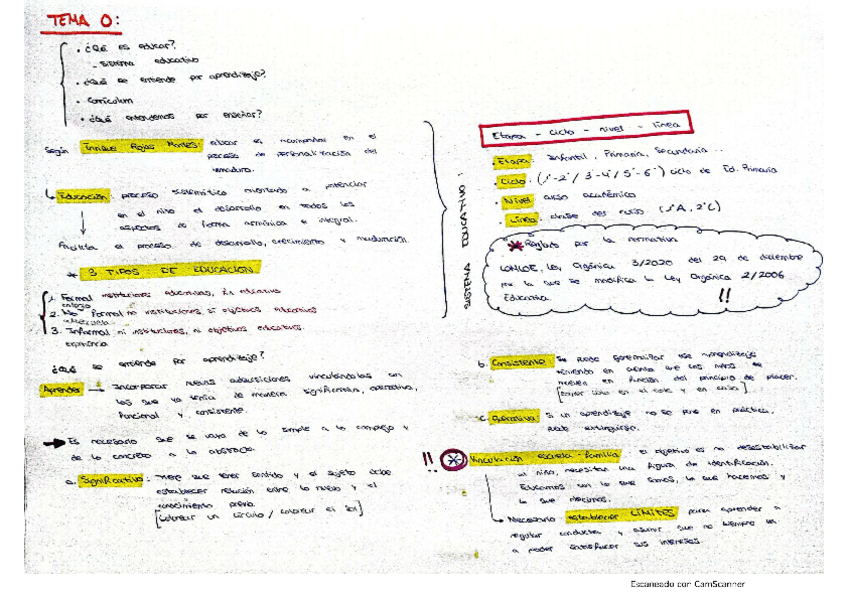 TEMA 0:
· ¿Qué es educar?
- Sistema educativo
· ¿Qué se entiende por aprendizaje?
· Currículum
· ¿Qué entendemos por enseñar?
Según Enrique Rojas Montes: educar es acompañar en el
proceso de personalización del
Educación: proceso sistemático orientado a potenciar
en el niño el desarrollo en todos los
aspectos de forma armónica e integral.
Facilita el proceso de desarrollo, crecimiento y maduración.
* 3 TIPOS DE EDUCACIÓN
1. Formal instituciones educativas,
2. No Formal no instituciones, si objetivos educativos
3. Informal ni instituciones, ni objetivos educativos.
¿Qué se entiende por aprendizaje?
Aprender → Incorporar nuevas adquisiciones vinculándolas con
las que ya tenía de manera significativa, operativa,
funcional y consistente.
→ Es necesario que se vaya de lo simple a lo complejo y
de lo concreto a lo abstracto.
a. Significativo: Tiene que tener sentido y el sujeto debe
establecer relación entre lo nuevo y el
conocimiento previo.
[Colorear un círculo / colorear el sol]
SISTEMA EDUCATIVO:
Etapa - ciclo - nivel - línea
· Etapa: Infantil, Primaria, Secundaria...
· Ciclo: (1º-2º / 3º-4º / 5º-6º) ciclo de Ed. Primaria
· Nivel: curso académico
· Línea: clase del curso (1ºA, 2ºC)
* Reglado por la normativa
LOMLOE, Ley Orgánica 3/2020 del 29 de diciembre
por la que se modifica la Ley Orgánica 2/2006
Educativa.
!!
b. Consistente: Se puede generalizar ese aprendizaje
teniendo en cuenta que los niños se
mueven en función del principio de placer.
en el cole y en casa]
c. Operativo: Si un aprendizaje no se pone en práctica,
puede extinguirse.
!! * Vinculación escuela-familia: el objetivo es no desestabilizar
al niño, necesitan una figura de identificación.
Educamos con lo que somos, lo que hacemos y
lo que decimos.
→ Necesario establecer LÍMITES para aprender a
regular conducta y asumir que no siempre va
a poder satisfacer sus intereses.
Escaneado con CamScanner